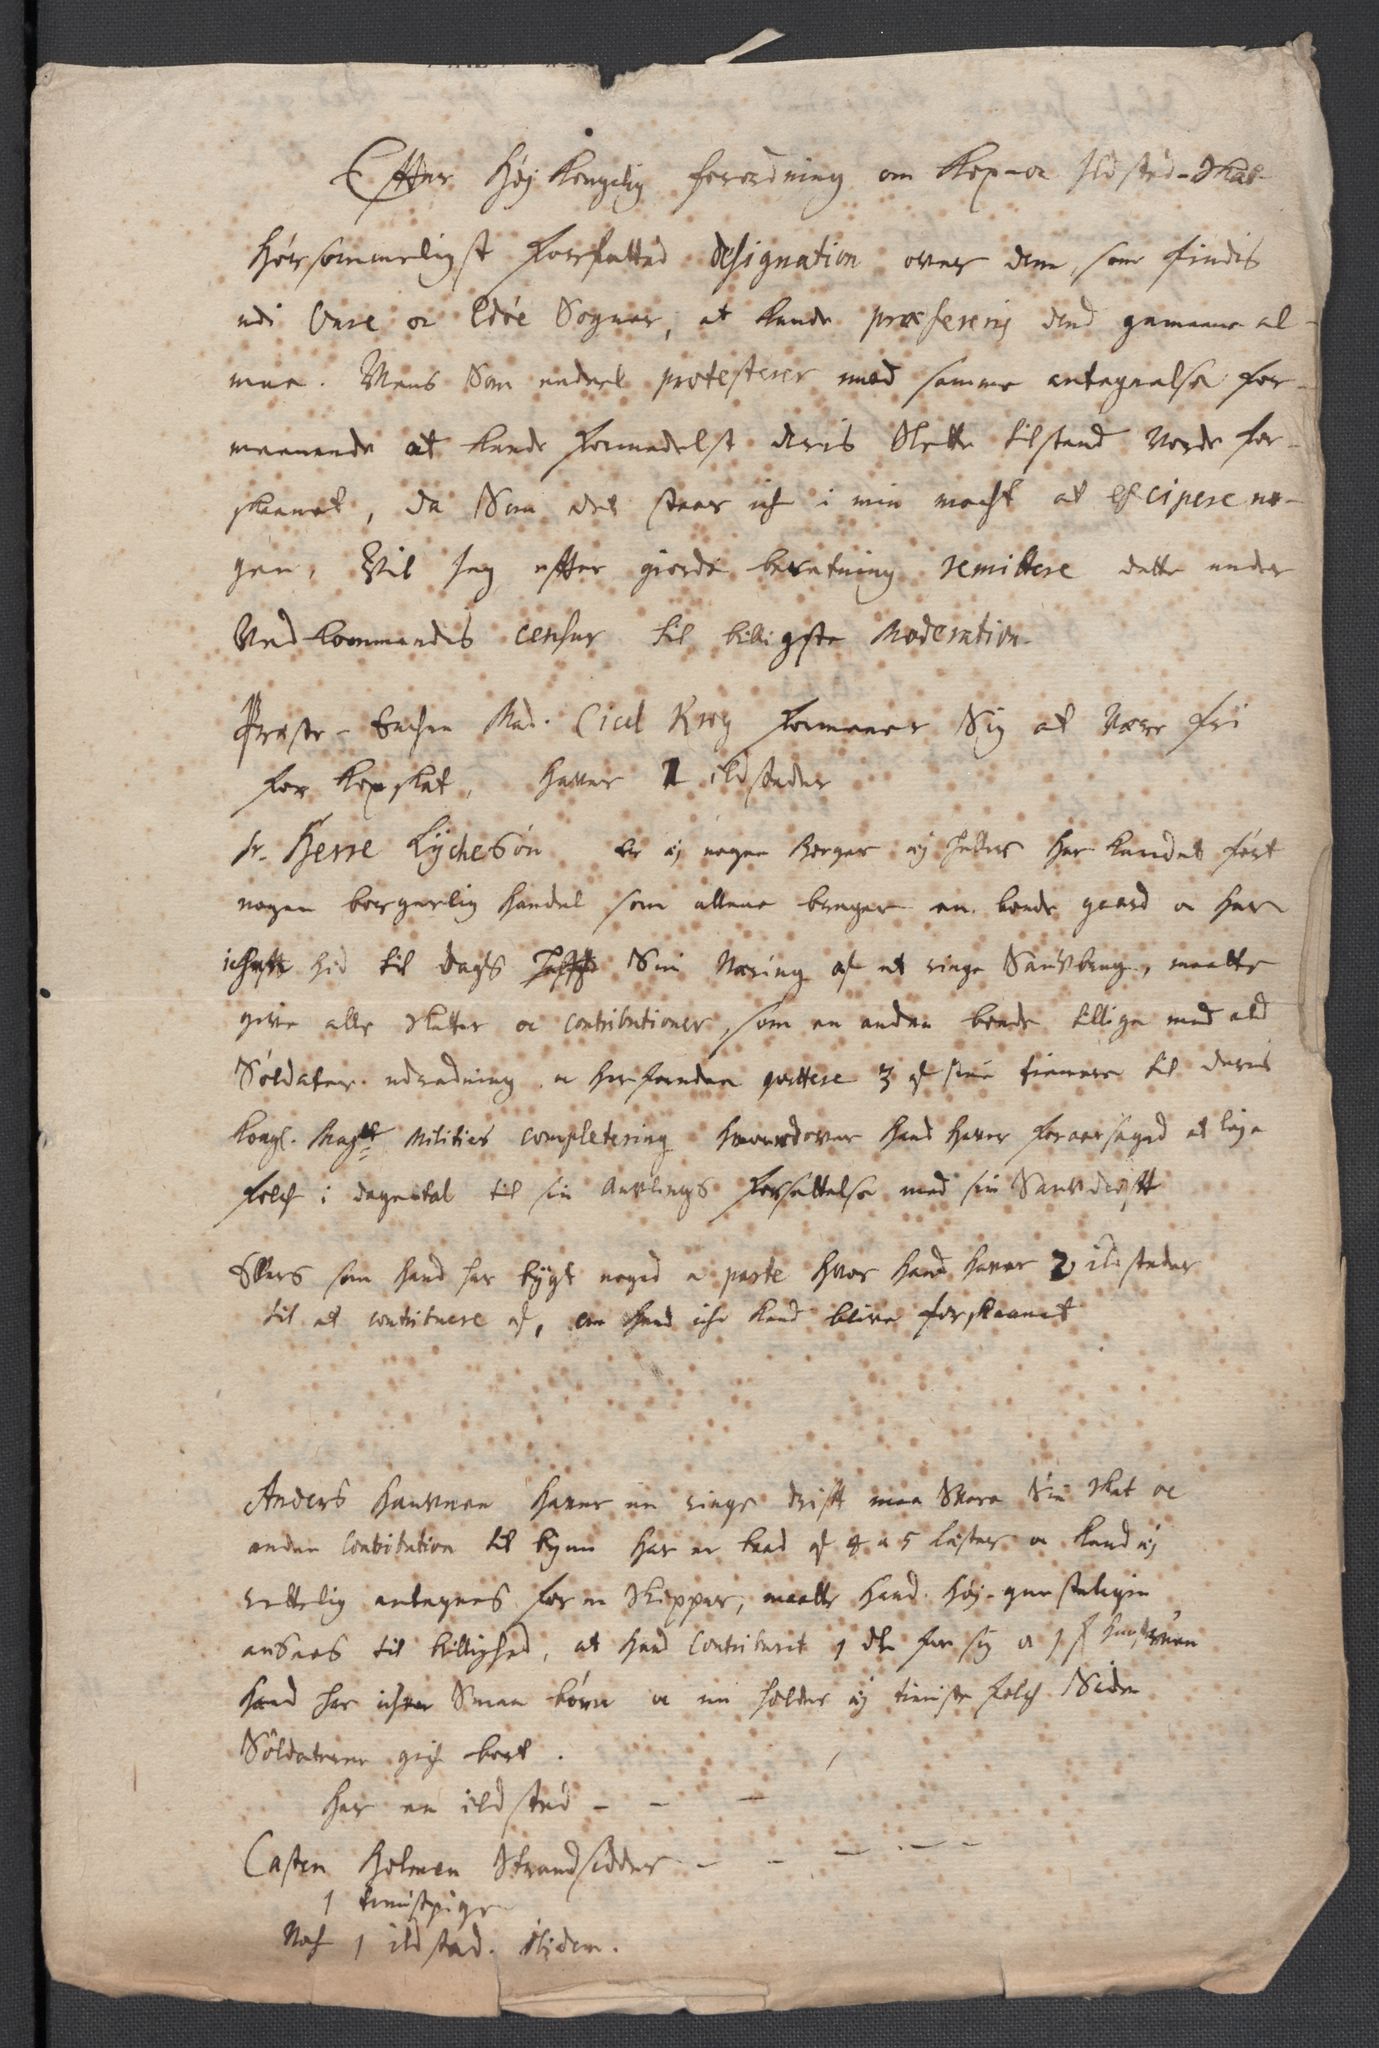 Effter Høy Kongelig forordning om Kop- oc Ildsted-Skat
hørsommeligst forfatted designation over dem, som findis
udi Aure oc Edøe Sogner, at kunde præfereris dend gemeene al-
mue. Mens Som endeel protesterer mod samme antegnelse for-
meenende at kunde formedelst deris Slette tilstand vorde for-
skaanet, da Som det staar ich i min macht at excipere no-
gen, Vil Jeg effter giorde beretning remittere dette under
Vedkommendis censur til billigste Moderation.
Præste-Enchen Mad. Cicel Krog formeener Sig at være fri
for Kopskat, hafver 2 ildsteder
Sr. Jesse Lÿchesøn er ej nogen borger ej heller har kundet ført
nogen borgerlig handel som allene bruger en bonde gaard oc har
hid til dags Sin Næring af et ringe Saugbrug, maatte
give alle skatter oc contributioner, som en anden bonde tillige med ald
Soldater udredning oc herforuden qvittere 3 af sine tienere til deris
Kongl. Maytts Milities completering hvorudover hand haver foraarsaged at leje
folch i dagental til sin Auflings forsættelse med sin Saugdrifft
Ellers som hand har bÿgt noged a parte hvor hand haver 2 ildsteder
til at contribuere af, om hand iche kand blive forskaanet
Anders hafver en ringe drifft maa Svare Sin skat oc
anden Contribution til bÿen har en baad af 4 a 5 Lester oc kand ej
rettelig antegnes for en Skipper, maatte hand høj-gunsteligen
ansees til billighed, at hand Contribuerit 1 dlr for sig oc 1 f hustruen
hand har Smaa børn oc nu holder ej tieniste folch Siden
Soldaterne gich bort.
har en ildsted - - -
Casten Holmen Strandsidder - - - - -
1 tienistpige
Noch 1 ildsted. ibidem.